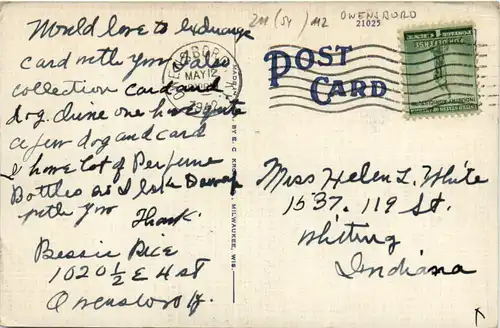 Would love to exchange
card with you. I also
collection card and
dog. mine one have quite
a few dog and card
I have lot of Perfume
Bottles as I
with you
Thank.
Bessie
1020 1/2 E 4 st
Owensboro Ky.
OWENSBORO
21025
OWENSBORO
MAY 12
POST
CARD
BY E. C. MILWAUKEE, WIS.
Miss Helen L. White
1537. 119 St.
Whiting
Indiana